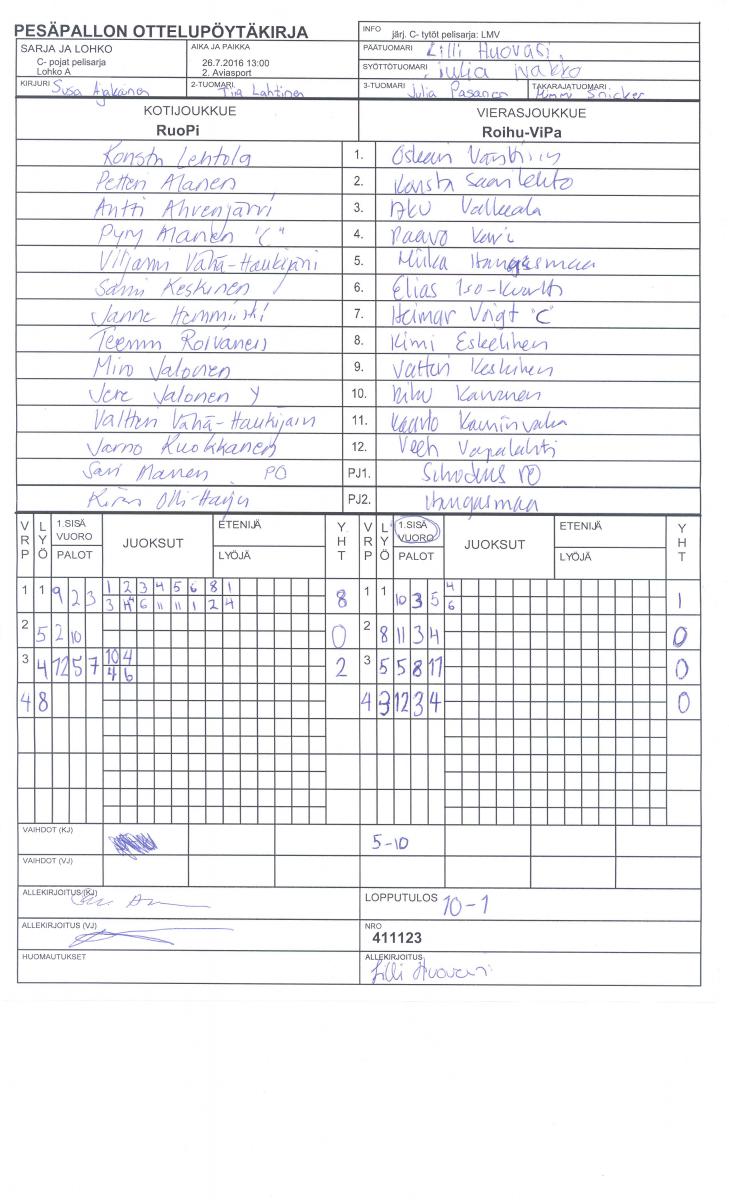 PESÄPALLON OTTELUPÖYTÄKIRJA
INFO järj. C- tytöt pelisarja: LMV
SARJA JA LOHKO
C- pojat pelisarja
Lohko A
AIKA JA PAIKKA
26.7.2016 13:00
2. Aviasport
PÄÄTUOMARI Lilli Huovari
SYÖTTÖTUOMARI Julia Nakko
KIRJURI Susa Ajakainen
2-TUOMARI Tiia Lahtinen
3-TUOMARI Julia Pasanen
TAKARAJATUOMARI Snicker
KOTIJOUKKUE
RuoPi
VIERASJOUKKUE
Roihu-ViPa
Konsta Lehtola 1. Oskari
Petteri Alanen 2. Konsta Saarilehto
Antti Ahvenjärvi 3. Aku Valkeala
Pyry Alanen "C" 4. Paavo
Viljami Vähä-Haukijärvi 5. Miika Hangasmaa
Sami Keskinen 6. Elias Iso-
Janne 7. Heimar Voigt "C"
Teemu Roivanen 8. Kimi Eskelinen
Miro Jalonen 9. Valtteri Keskinen
Jere Jalonen 10. Riku
Valtteri Vähä-Haukijärvi 11. Kaarlo
Jarno Kuokkanen 12. Veeti Vapalahti
Sari Alanen PO PJ1. PO
Olli-Harju PJ2. Hangasmaa
VRP LYÖ 1.SISÄ VUORO PALOT JUOKSUT ETENIJÄ LYÖJÄ YHT VRP LYÖ 1.SISÄ VUORO PALOT JUOKSUT ETENIJÄ LYÖJÄ YHT
1 1 9 2 3 1 2 3 4 5 6 8 1 8 1 1 10 3 5 4 1
3 4 6 11 11 1 2 4 6
2 5 2 10 0 2 8 11 3 4 0
3 4 12 5 7 10 4 2 3 5 5 8 11 0
4 6
4 8 4 3 12 3 4 0
VAIHDOT (KJ) 5-10
VAIHDOT (VJ)
ALLEKIRJOITUS (KJ)
LOPPUTULOS 10-1
ALLEKIRJOITUS (VJ)
NRO
411123
HUOMAUTUKSET
ALLEKIRJOITUS
Lilli Huovari